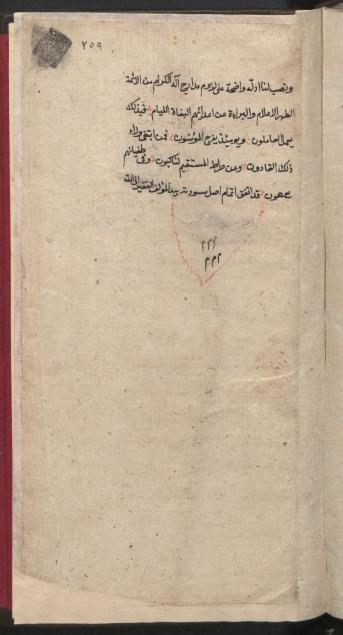 ٢٥٩
ونصب لنا ادلة واضحة على لزوم مدايح آله الكرام من الائمة
الطهر الاعلام والبراءة عن اعدائهم البغاة اللئام فبذلك
يعمل العاملون ويومئذ يفرح المؤمنون فمن ابتغى وراء
ذلك القادون وعن صراط المستقيم لناكبون وفى طغيانهم
يعمهون قد اتفق اتمام اصل مسودته بيد المؤلف الفقير الى الله